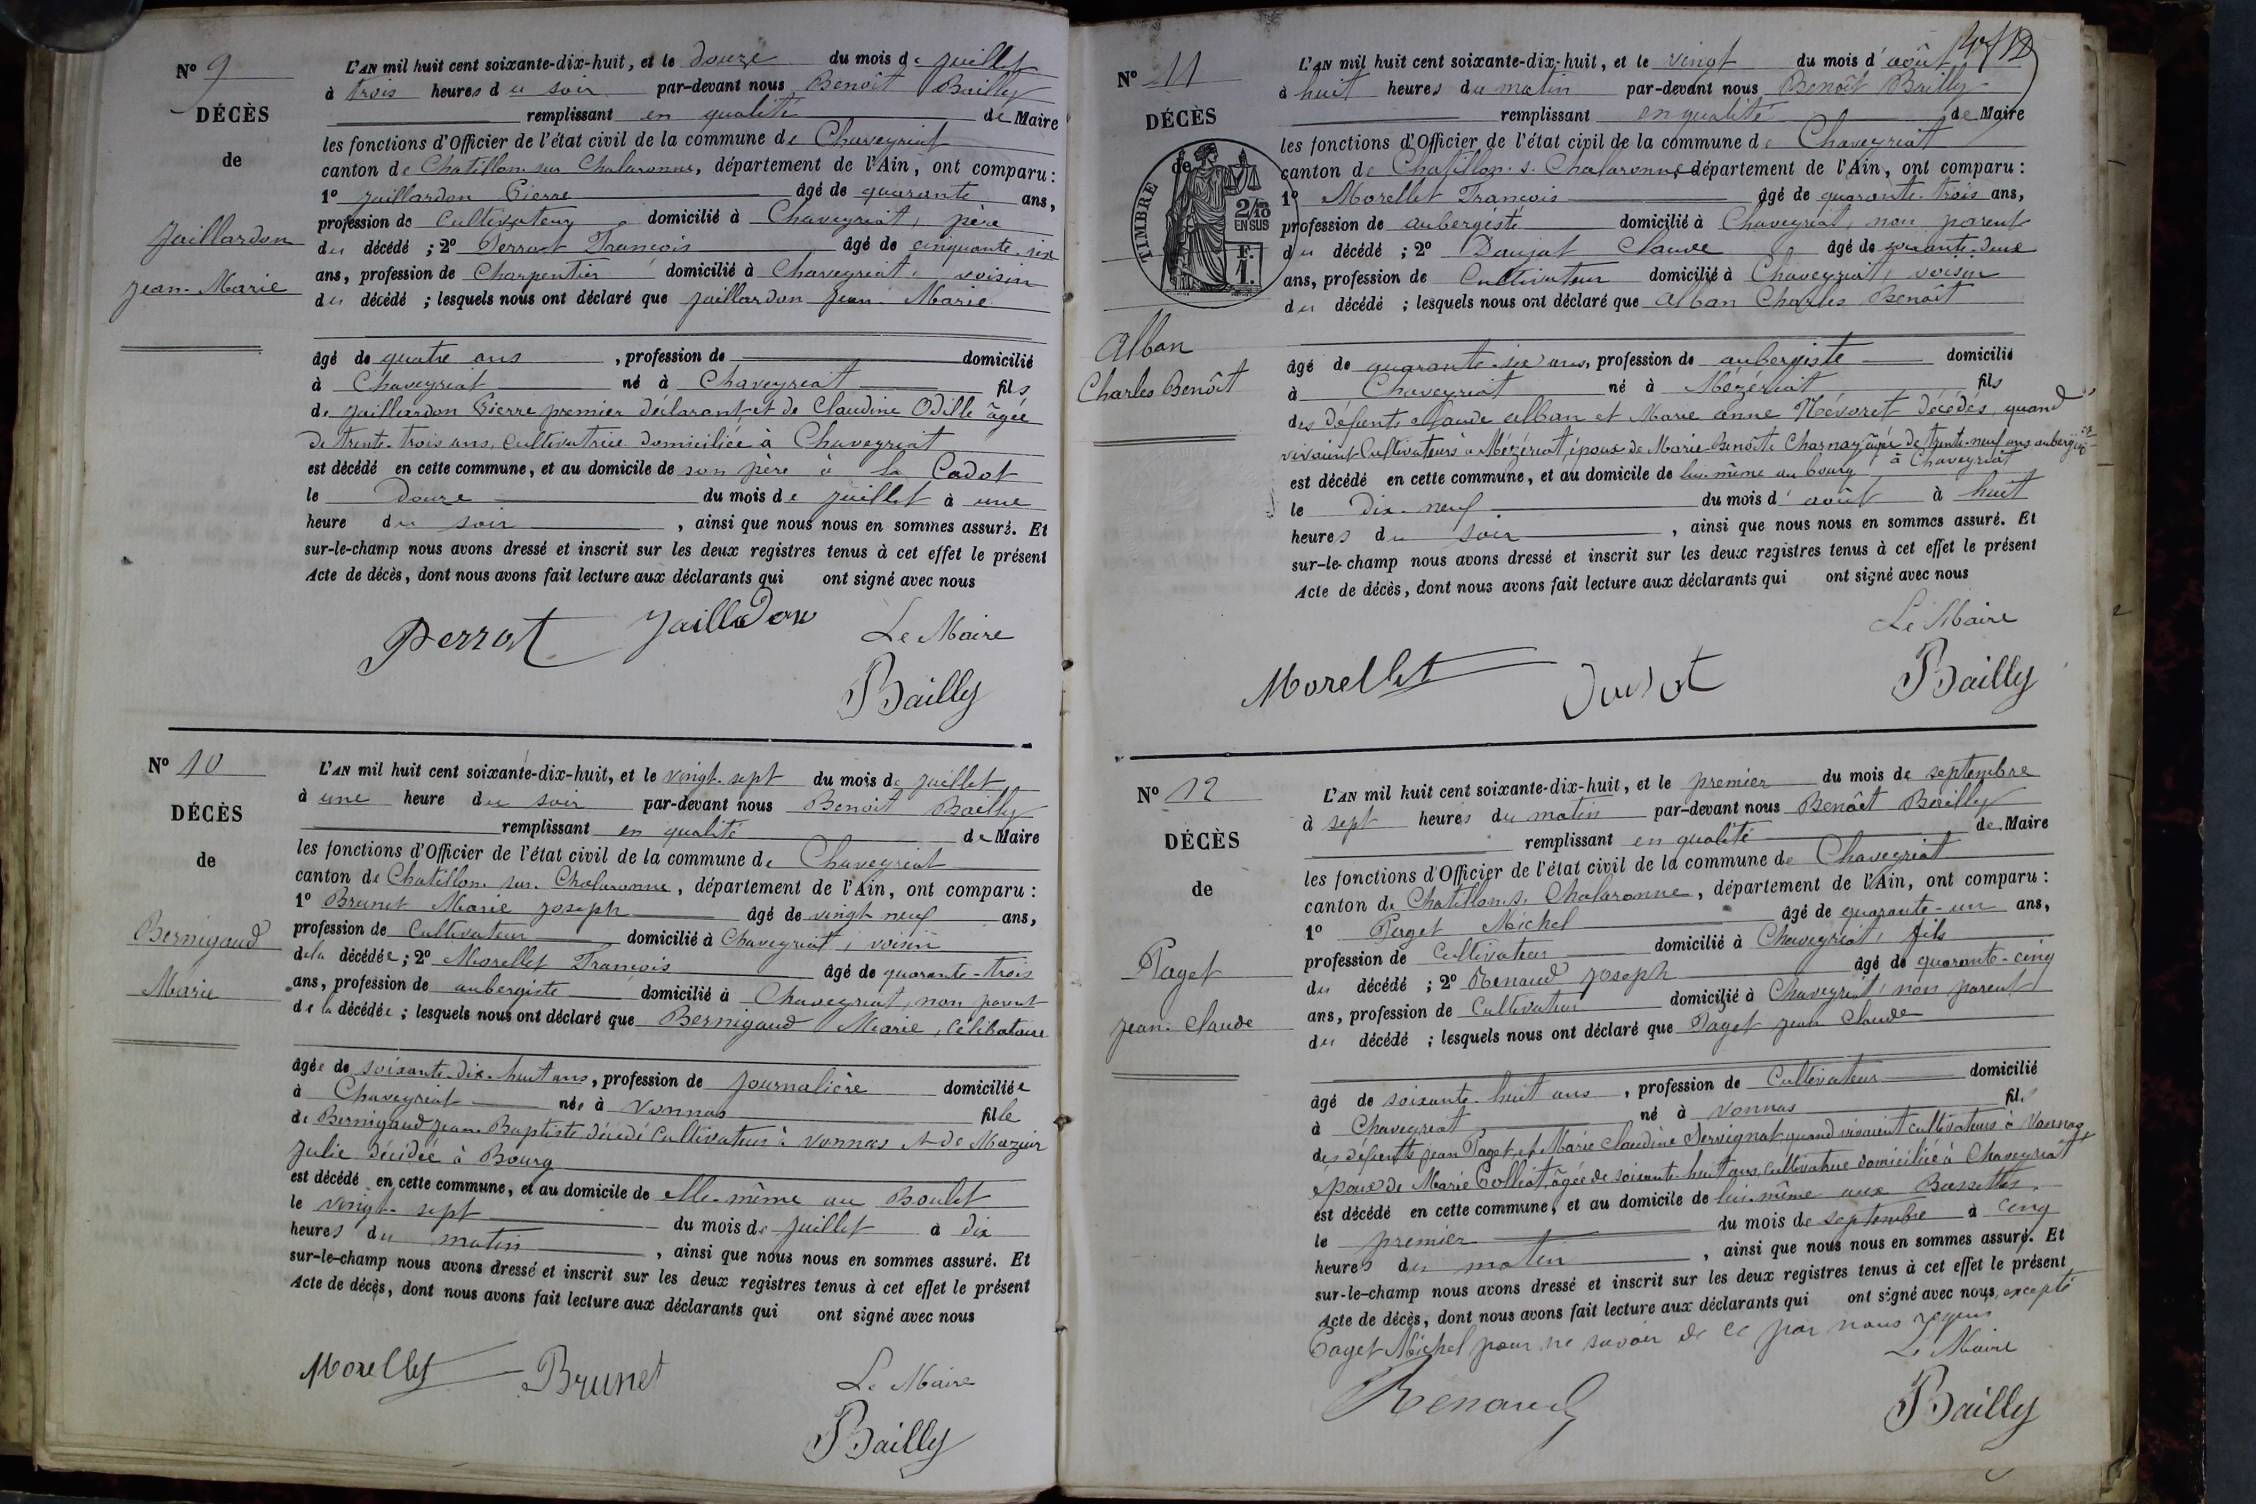 N° 9
DÉCÈS
de
Jaillardon
Jean-Marie
L'AN mil huit cent soixante-dix-huit, et le douze du mois de juillet
à trois heures du soir par-devant nous Benoît Bailly
remplissant en qualité de Maire
les fonctions d'Officier de l'état civil de la commune de Chaveyriat
canton de Chatillon sur Chalaronne, département de l'Ain, ont comparu :
1° Jaillardon Pierre âgé de quarante ans,
profession de cultivateur domicilié à Chaveyriat, père
du décédé ; 2° Perrat François âgé de cinquante-six
ans, profession de Charpentier domicilié à Chaveyriat, voisin
du décédé ; lesquels nous ont déclaré que Jaillardon Jean-Marie
âgé de quatre ans , profession de domicilié
à Chaveyriat né à Chaveyriat fils
de Jaillardon Pierre premier déclarant et de Claudine Odille âgée
de trente-trois ans, cultivatrice domiciliée à Chaveyriat
est décédé en cette commune, et au domicile de son père à la Cadot
le Douze du mois de juillet à une
heure du soir , ainsi que nous nous en sommes assuré. Et
sur-le-champ nous avons dressé et inscrit sur les deux registres tenus à cet effet le présent
Acte de décès, dont nous avons fait lecture aux déclarants qui ont signé avec nous
Perrat Jailladon Le Maire
Bailly
N° 10
DÉCÈS
de
Bernigaud
Marie
L'AN mil huit cent soixante-dix-huit, et le vingt-sept du mois de juillet
à une heure du soir par-devant nous Benoît Bailly
remplissant en qualité de Maire
les fonctions d'Officier de l'état civil de la commune de Chaveyriat
canton de Chatillon-sur-Chalaronne, département de l'Ain, ont comparu :
1° Brunet Marie Joseph âgé de vingt neuf ans,
profession de Cultivateur domicilié à Chaveyriat, voisin
de la décédée ; 2° Morellet François âgé de quarante-trois
ans, profession de aubergiste domicilié à Chaveyriat, non parent
de la décédée ; lesquels nous ont déclaré que Bernigaud Marie, célibataire
âgée de soixante-dix-huit ans, profession de journalière domiciliée
à Chaveyriat née à Vonnas fille
de Bernigaud Jean-Baptiste, décédé cultivateur à Vonnas et de Mazuir
Julie décédée à Bourg
est décédé en cette commune, et au domicile de elle-même au Boulet
le vingt-sept du mois de juillet à dix
heures du matin , ainsi que nous nous en sommes assuré. Et
sur-le-champ nous avons dressé et inscrit sur les deux registres tenus à cet effet le présent
Acte de décès, dont nous avons fait lecture aux déclarants qui ont signé avec nous
Morellet Brunet Le Maire
Bailly
N° 11
DÉCÈS
de
TIMBRE
2/10
EN SUS
F.
1.
Alban
Charles Benoît
L'AN mil huit cent soixante-dix-huit, et le vingt du mois d'août
à huit heures du matin par-devant nous Benoît Bailly
remplissant en qualité de Maire
les fonctions d'Officier de l'état civil de la commune de Chaveyriat
canton de Chatillon-s-Chalaronne département de l'Ain, ont comparu :
1° Morellet François âgé de quarante-trois ans,
profession de aubergiste domicilié à Chaveyriat, non parent
du décédé ; 2° Claude âgé de deux
ans, profession de Cultivateur domicilié à Chaveyriat, voisin
du décédé ; lesquels nous ont déclaré que Alban Charles Benoît
âgé de quarante-six ans, profession de aubergiste domicilié
à Chaveyriat né à Mézériat fils
des défunts Claude Alban et Marie Anne Névoret décédés, quand
vivaient cultivateurs à Mézériat, époux de Marie Benoîte Charnay âgée de trente-neuf ans aubergiste
à Chaveyriat
est décédé en cette commune, et au domicile de lui-même au bourg
le dix-neuf du mois d'août à huit
heures du soir , ainsi que nous nous en sommes assuré. Et
sur-le-champ nous avons dressé et inscrit sur les deux registres tenus à cet effet le présent
Acte de décès, dont nous avons fait lecture aux déclarants qui ont signé avec nous
Le Maire
Morellet Bailly
N° 12
DÉCÈS
de
Paget
Jean-Claude
L'AN mil huit cent soixante-dix-huit, et le premier du mois de septembre
à sept heures du matin par-devant nous Benoît Bailly
remplissant en qualité de Maire
les fonctions d'Officier de l'état civil de la commune de Chaveyriat
canton de Chatillon-s-Chalaronne, département de l'Ain, ont comparu :
1° Paget Michel âgé de quarante-un ans,
profession de cultivateur domicilié à Chaveyriat, fils
du décédé ; 2° Renaud Joseph âgé de quarante-cinq
ans, profession de Cultivateur domicilié à Chaveyriat, non parent
du décédé ; lesquels nous ont déclaré que Paget Jean Claude
âgé de soixante-huit ans , profession de Cultivateur domicilié
à Chaveyriat né à Vonnas fils
des défunts Jean Paget et Marie Claudine Servignat quand vivaient cultivateurs à Vonnas
époux de Marie Colliat âgée de soixante-huit ans, cultivatrice domiciliée à Chaveyriat
est décédé en cette commune, et au domicile de lui-même aux Bassettes
le premier du mois de septembre à cinq
heures du matin , ainsi que nous nous en sommes assuré. Et
sur-le-champ nous avons dressé et inscrit sur les deux registres tenus à cet effet le présent
Acte de décès, dont nous avons fait lecture aux déclarants qui ont signé avec nous, excepté
Paget Michel pour ne savoir de ce par nous requis
Le Maire
Renaud Bailly